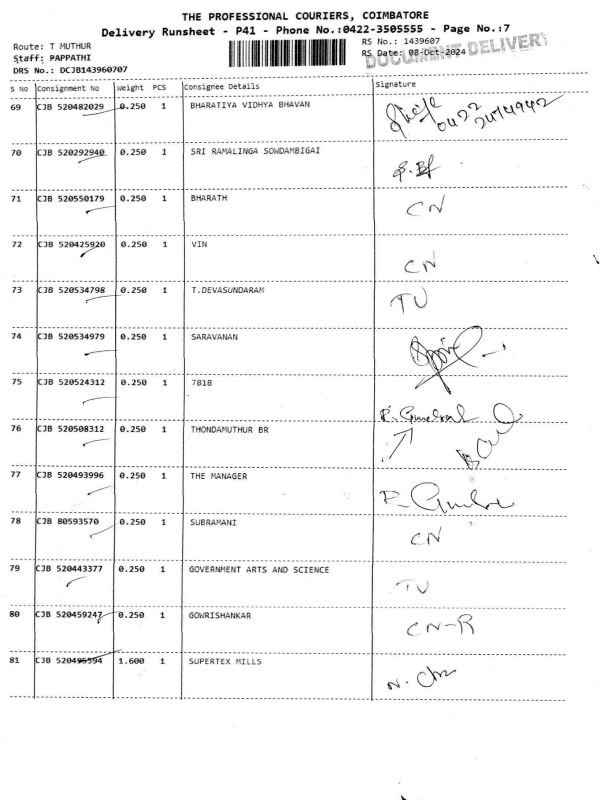 THE PROFESSIONAL COURIERS, COIMBATORE
Delivery Runsheet - P41 - Phone No.:0422-3505555 - Page No.:7
Route: T MUTHUR
Staff: PAPPATHI
DRS No.: DCJB143960707
RS No.: 1439607
RS Date: 08-Oct-2024
DOCUMENT DELIVERY
S No Consignment No Weight PCS Consignee Details Signature
69 CJB 520482029 0.250 1 BHARATIYA VIDHYA BHAVAN
0422
70 CJB 520292940 0.250 1 SRI RAMALINGA SOWDAMBIGAI
71 CJB 520550179 0.250 1 BHARATH CN
72 CJB 520425920 0.250 1 VIN CN
73 CJB 520534798 0.250 1 T.DEVASUNDARAM TU
74 CJB 520534979 0.250 1 SARAVANAN
75 CJB 520524312 0.250 1 7818
76 CJB 520508312 0.250 1 THONDAMUTHUR BR
77 CJB 520493996 0.250 1 THE MANAGER
78 CJB 80593570 0.250 1 SUBRAMANI CN
79 CJB 520443377 0.250 1 GOVERNMENT ARTS AND SCIENCE TU
80 CJB 520459247 0.250 1 GOWRISHANKAR CN-R
81 CJB 520495594 1.600 1 SUPERTEX MILLS